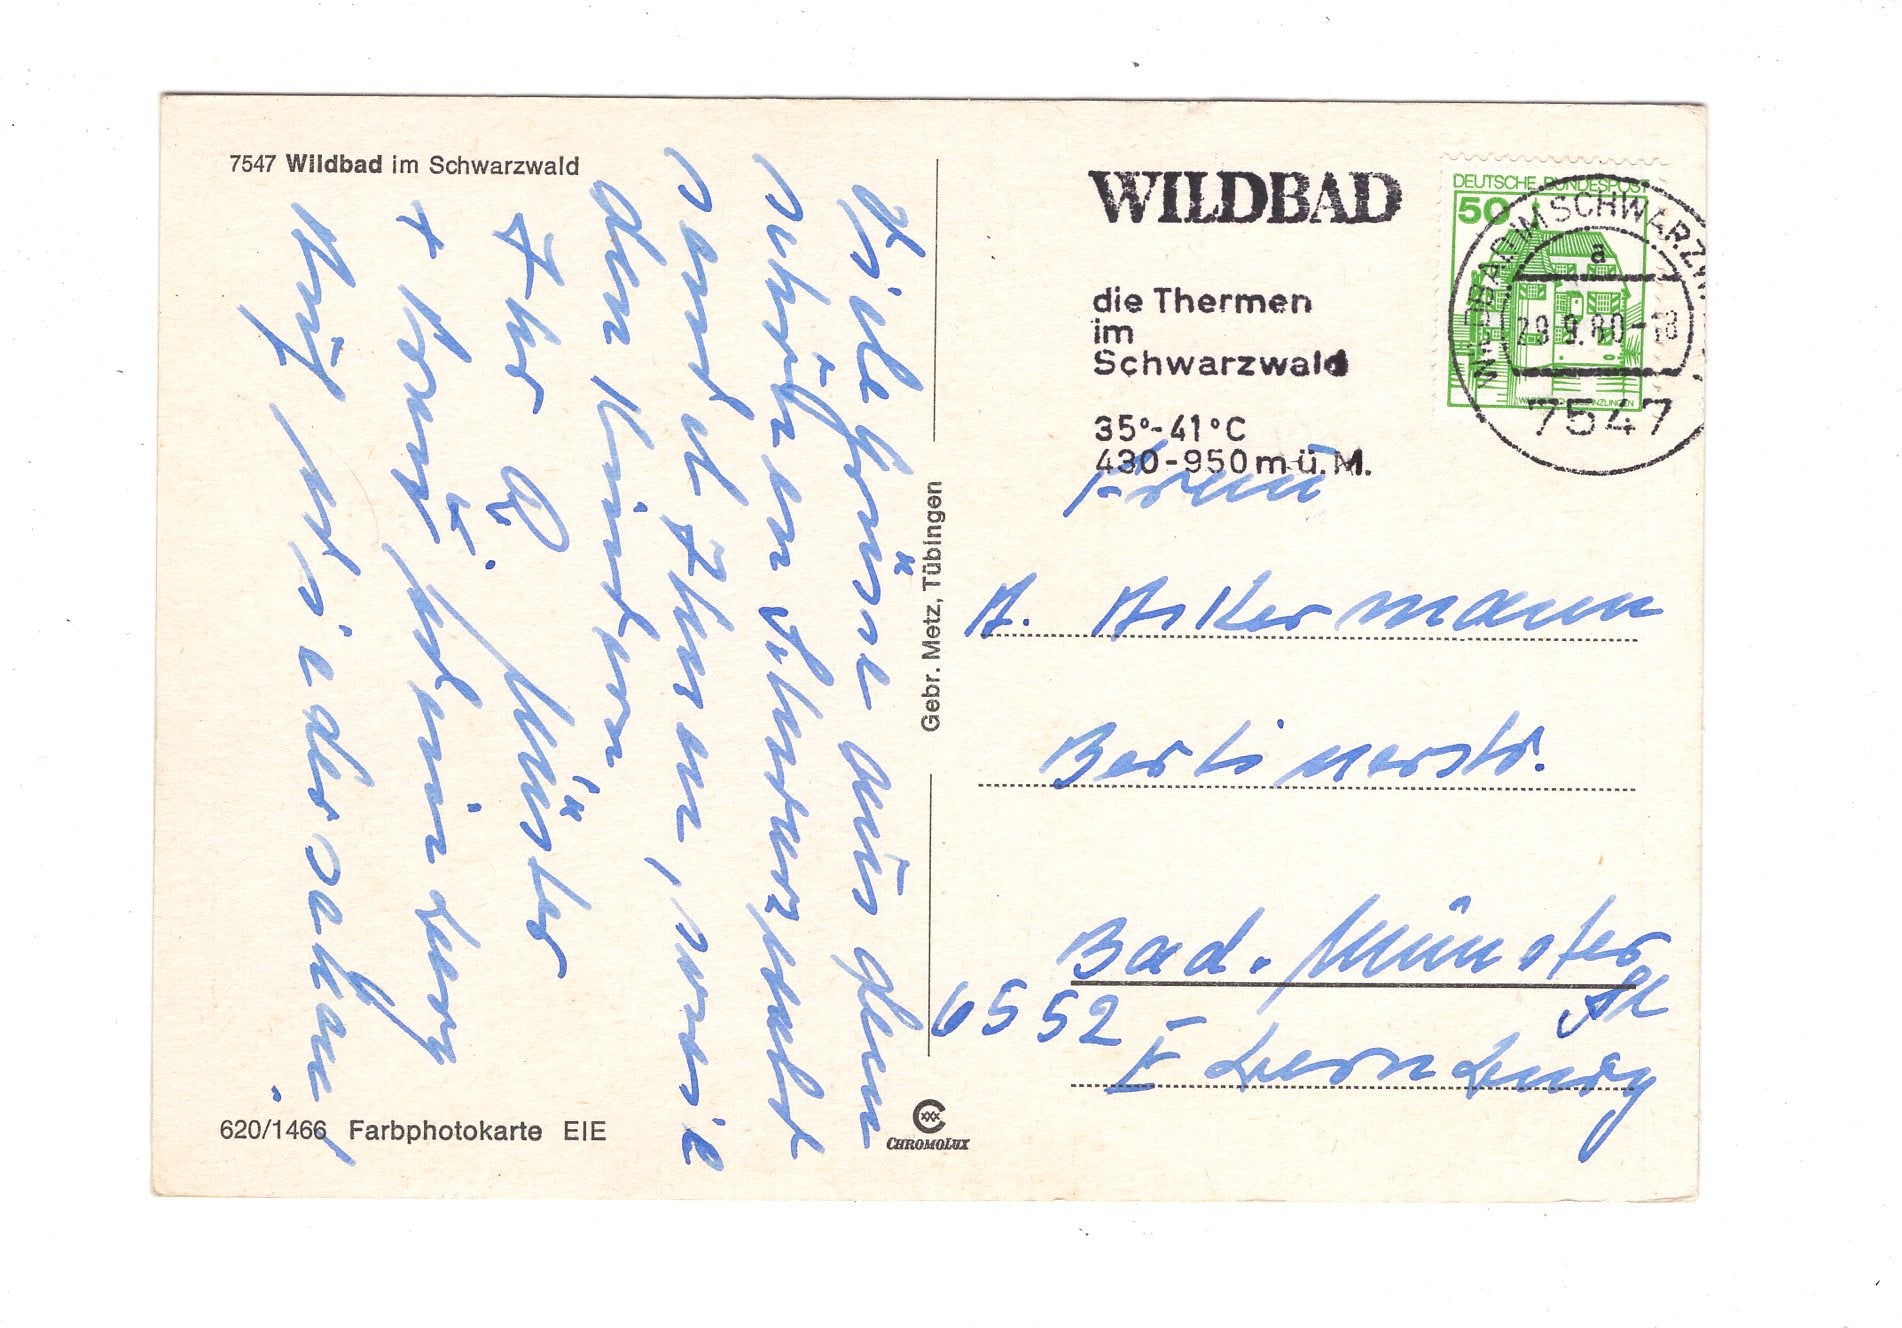 7547 Wildbad im Schwarzwald
Viele Grüße aus dem
schönen Schwarzwald
sendet Ihnen, sowie
den Kindern
Ihr R. Müller
+ Frau.
Auf Wiedersehen!
620/1466 Farbphotokarte EIE
Gebr. Metz, Tübingen
CHROMOLUX
WILDBAD
die Thermen
im
Schwarzwald
35°-41°C
430-950 m ü. M.
DEUTSCHE BUNDESPOST
50
WILDBAD IM SCHWARZW
a
29.9.80-18
7547
Frau
A. Ackermann
Berlinerstr.
Bad. Münster
a/
6552
Ebernburg